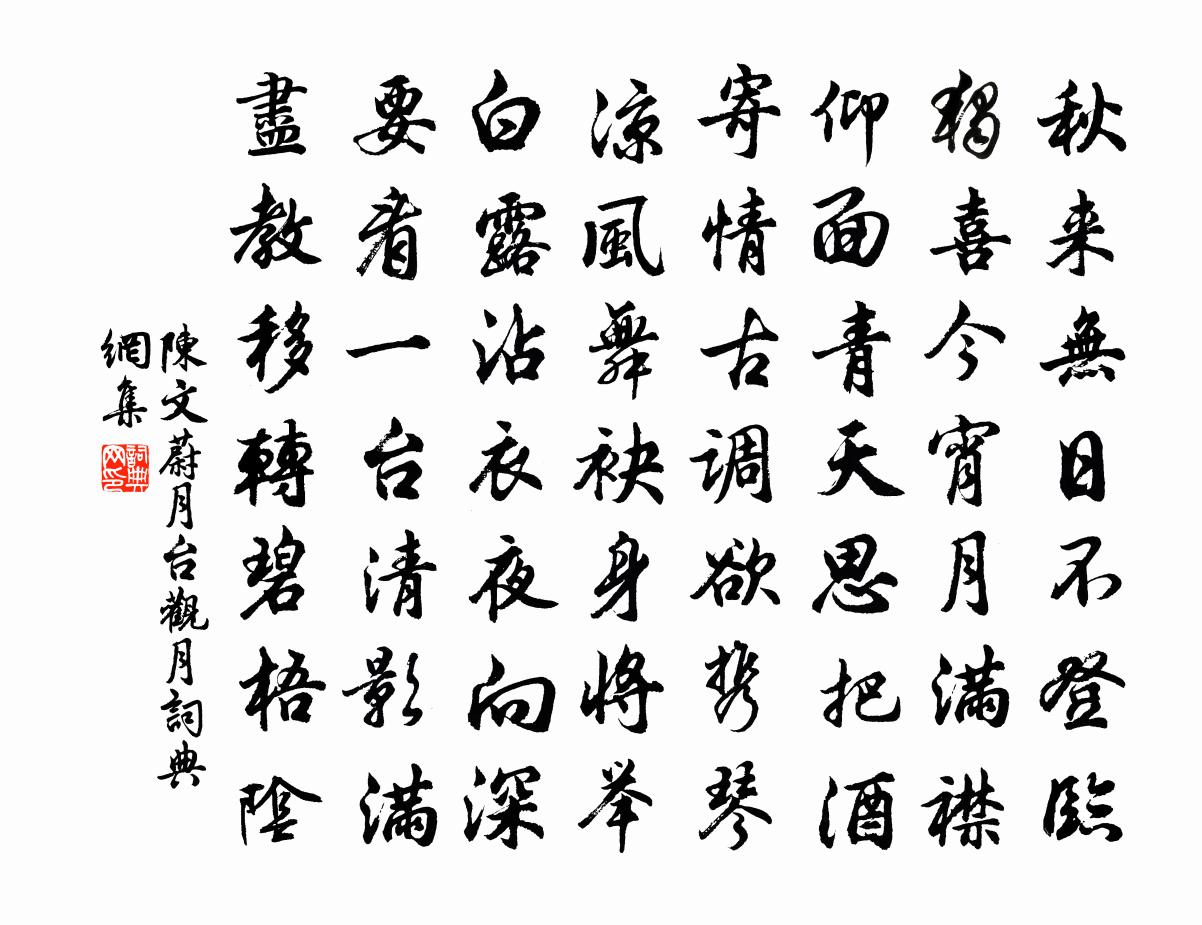 秋来無日不登臨
獨喜今宵月滿襟
仰面青天思把酒
寄情古调欲携琴
凉風舞袂身将举
白露沾衣夜向深
要看一台清影滿
盡教移轉碧梧陰
陳文蔚月台觀月詞典
網集
詞典
网印